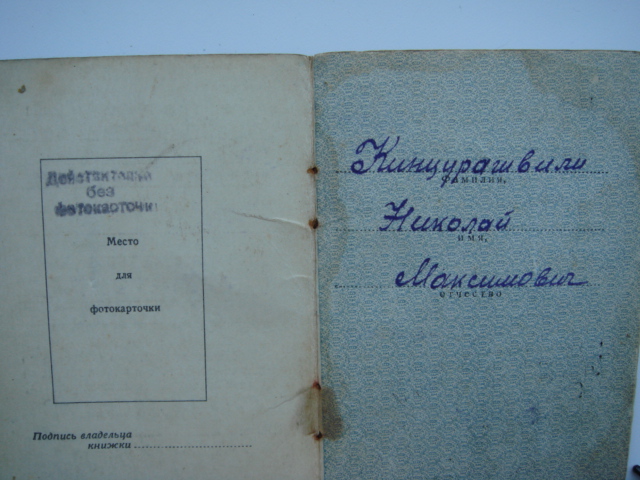 Действителен
без
фотокарточки
Место
для
фотокарточки
Подпись владельца
книжки
Кинцурашвили
фамилия,
Николай
имя,
Максимович
отчество